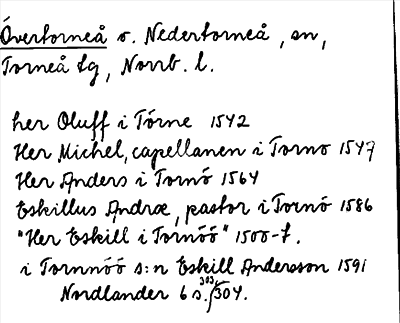 Övertorneå o. Nedertorneå, sn,
Torneå tg, Norrb. l.
her Oluff i Tórne 1542
Her Michel, capellanen i Torno 1547
Her Anders i Tornö 1564
Eskillus Andræ, pastor i Tornö 1586
"Her Eskill i Tornöö" 1500-t.
i Tornnöö s:n Eskill Andersson 1591
Nordlander 6 s. 303, 304.